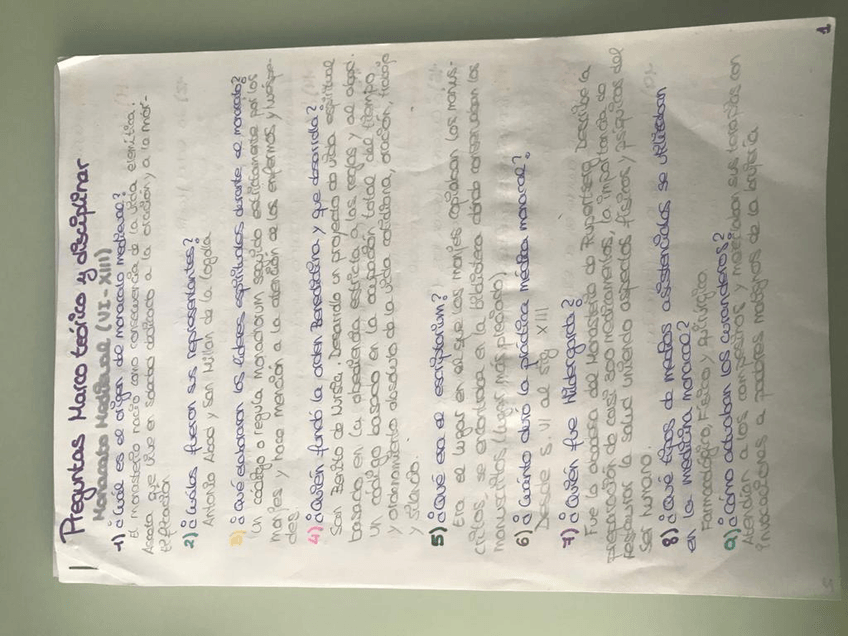 Preguntas Marco teórico y disciplinar
Monacato Medieval (VI - XIII)
1) ¿Cuál es el origen del monacato medieval?
El monasterio nació como consecuencia de la vida eremítica.
Asceta que vive en soledad dedicado a la oración y a la mor-
tificación
2) ¿Cuáles fueron sus representantes?
Antonio Abad y San Millán de la Cogolla
3) ¿Qué elaboraron los líderes espirituales durante el monacato?
Un código o regula monachorum seguido estrictamente por los
monjes y hace mención a la atención de los enfermos y huéspe-
des
4) ¿Quién fundó la orden Benedictina y que desarrolla?
San Benito de Nursia. Desarrolló un proyecto de vida espiritual
basado en la obediencia estricta a las reglas y al abad.
Un código basado en la ocupación total del tiempo
y ordenamiento absoluto de la vida cotidiana, oración, trabajo
y silencio.
5) ¿Qué era el escriptorium?
Era el lugar en el que los monjes copiaban los manus-
critos, se encontraba en la biblioteca donde conservaban los
manuscritos (lugar más preciado)
6) ¿Cuánto duro la práctica médica monacal?
Desde S. VI al sig XIII
7) ¿Quién fue Hildegarda?
Fue la abadesa del Monasterio de Rupertsberg. Describe la
preparación de casi 300 medicamentos, la importancia de
restaurar la salud uniendo aspectos físicos y psíquicos del
ser humano.
8) ¿Que tipos de medios asistenciales se utilizaban
en la medicina monacal?
Farmacológico, Físico y quirúrgico
9) ¿Cómo actuaban los curanderos?
Atendían a los campesinos, y mezclaban sus terapias con
invocaciones a poderes malignos de la brujería
1